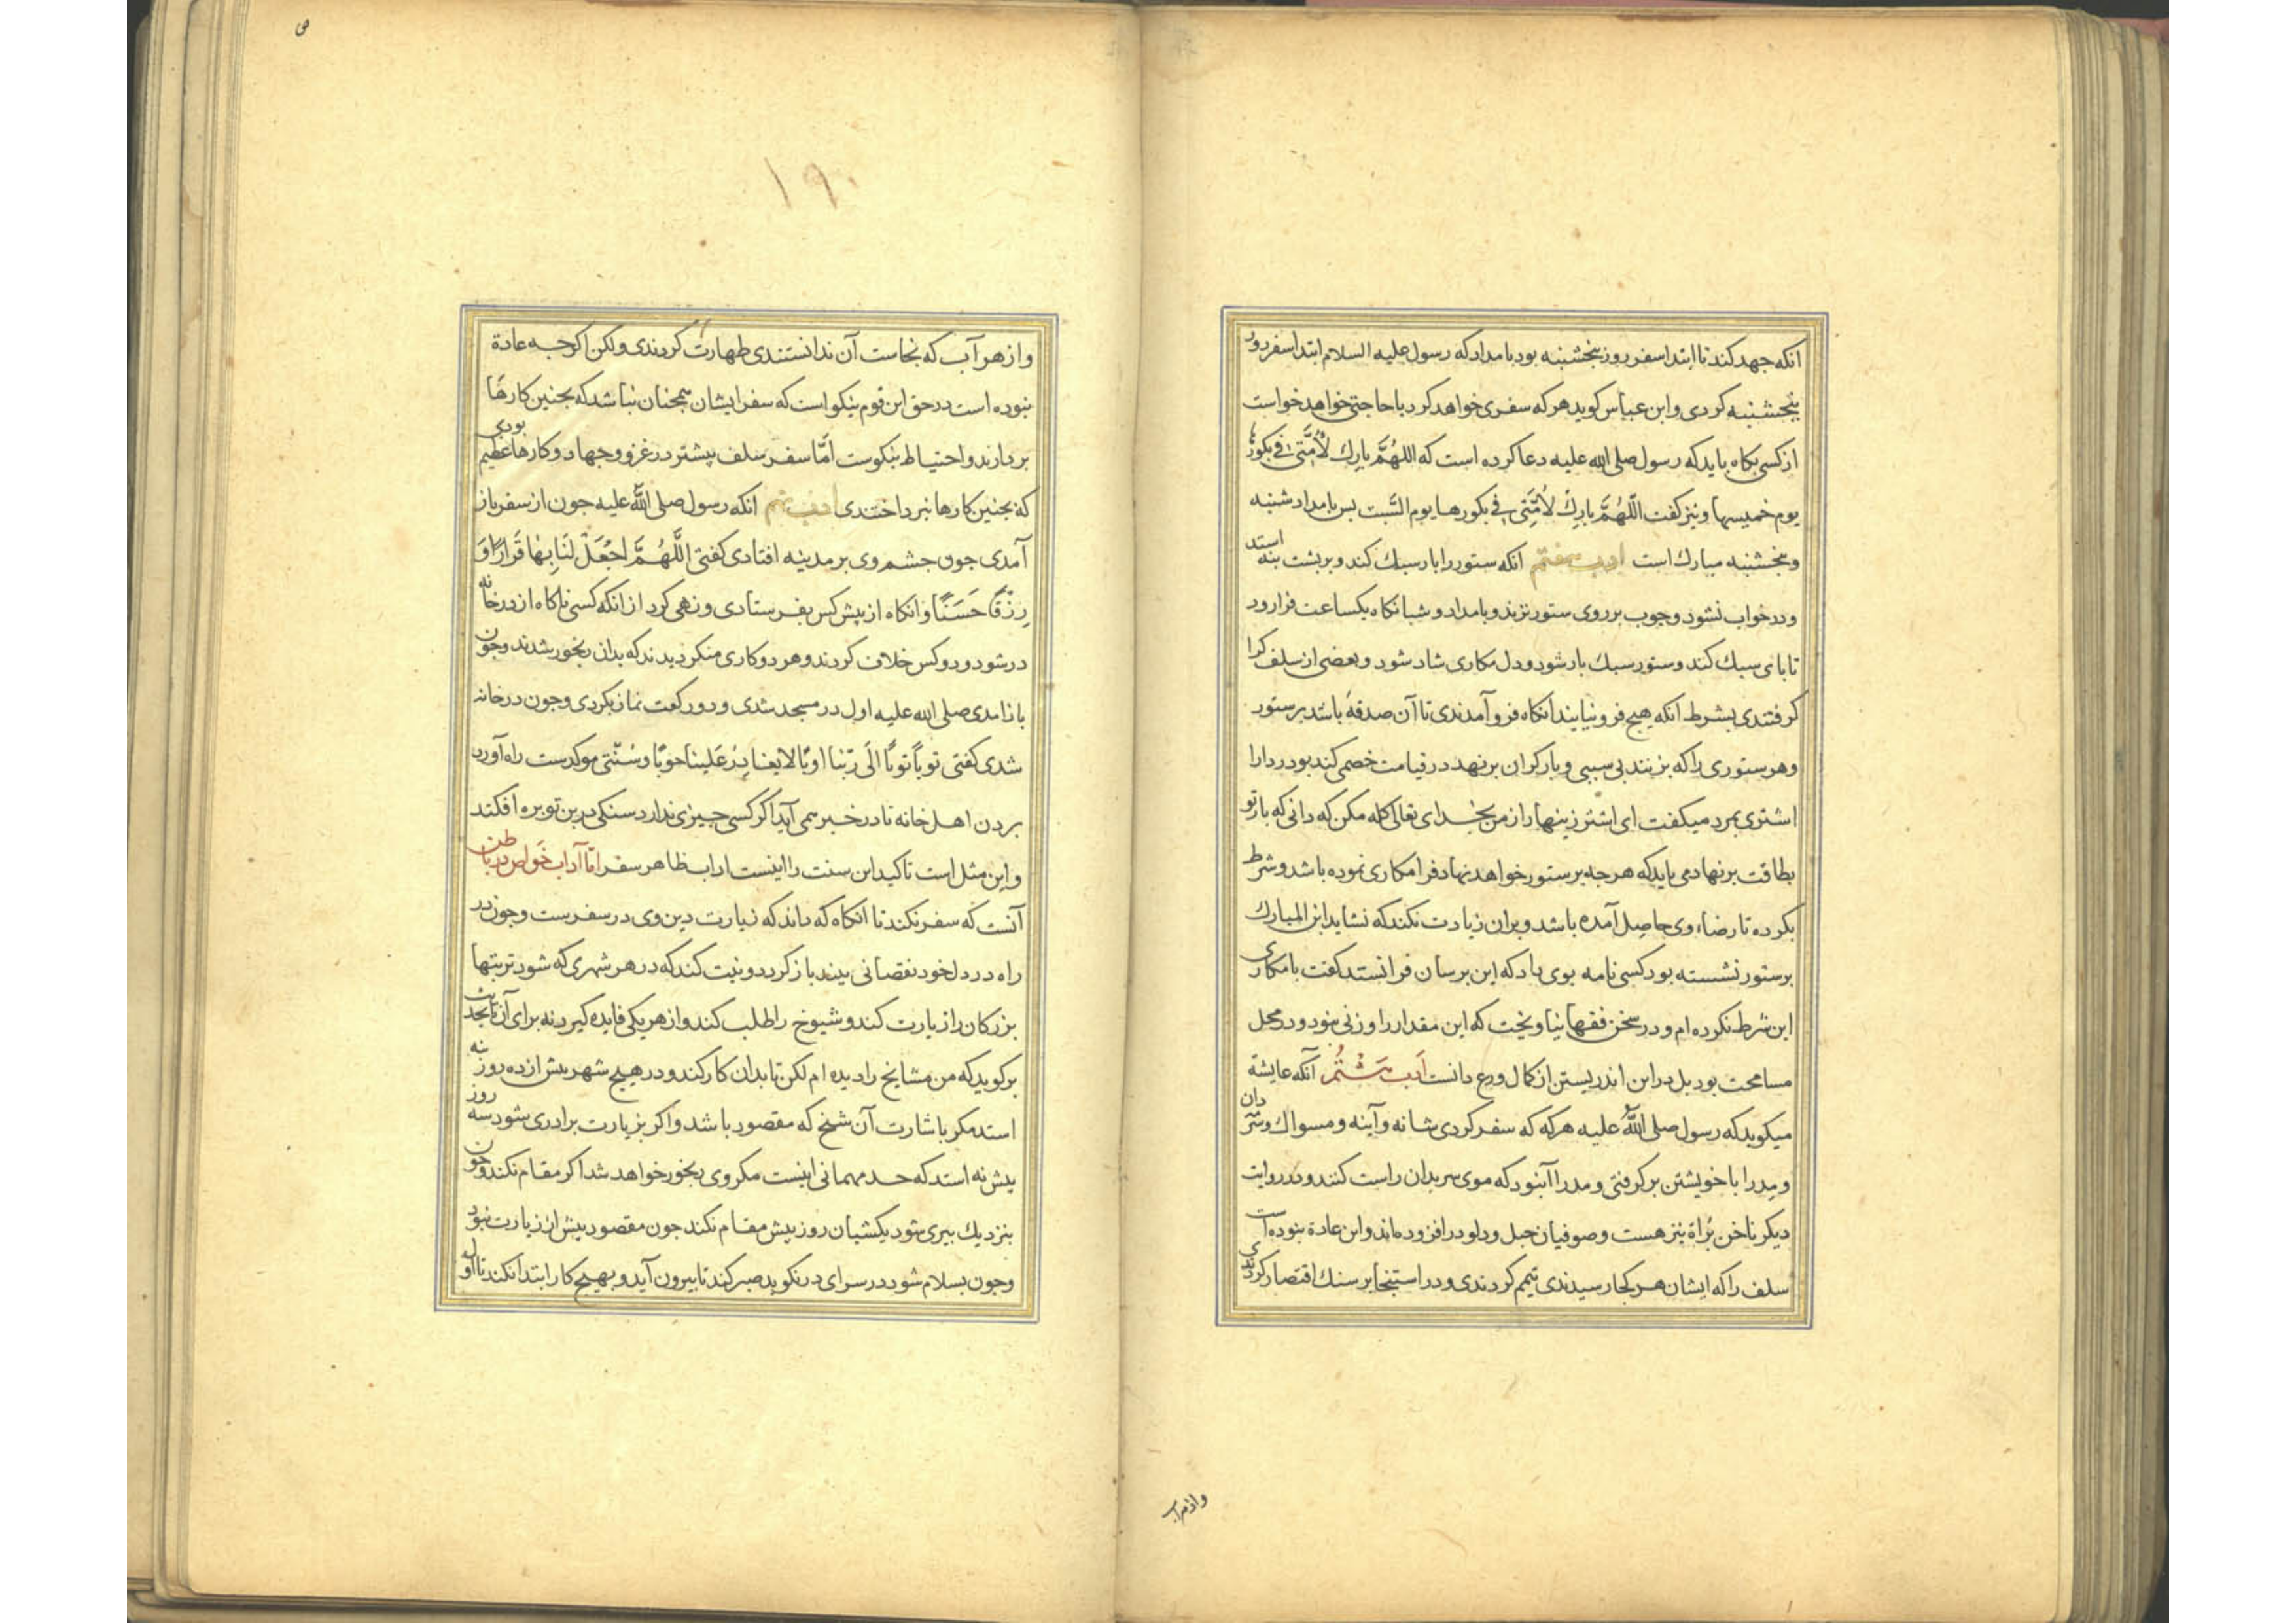 انکه جهد کند تا ابتدا سفر روز پنجشنبه بود بامداد که رسول علیه السلام ابتدا سفر روز
پنجشنبه کردی و ابن عباس کوید هر که سفری خواهد کرد یا حاجتی خواهد خواست
از کسی بکاه باید که رسول صلی الله علیه دعا کرده است که اللهُمَّ بارِك لأُمَّتی فی بکورها
یوم خمیسها و نیز کفت اللّهُمَّ بارِكْ لأُمَّتِی فی بکورها یوم السَّبت بس بامداد شنبه
و پنجشنبه مبارك است ادب هفتم انکه ستور را بار سبك کند و بر بشت بنه استد
و در خواب نشود و جوب بر روی ستور نزند و بامداد و شبانکاه یکساعت فرارود
تا بای سبك کند و ستور سبك بار شود و دل مکاری شاد شود و بعضی از سلف کرا
کرفتندی بشرط انکه هیچ فرو نیایند انکاه فرو آمدندی تا آن صدقه باشد بر ستور
و هر ستوری را که بزنند بی سببی و بار کران برنهد در قیامت خصمی کند بودردا را
اشتری بمرد میکفت ای اشتر زینهار از من بخدای تعالی کله مکن که دانی که بار تو
بطاقت بر نهادمی باید که هر جه بر ستور خواهد نهاد فرا مکاری نموده باشد و شرط
بکرده تا رضاء وی حاصل آمده باشد و بران زیادت نکند که نشاید ابن المبارك
بر ستور نشسته بود کسی نامه بوی داد که این برسان فرانستد کفت با مکاری
این شرط نکرده ام و در سخن فقها نیاویخت که این مقدار را وزنی نبود و در محل
مسامحت بود بل در این اندریستن از کمال ورع دانست ادب هشتم آنکه عایشة
میکوید که رسول صلی اللّهُ علیه هرکه که سفر کردی شانه و آینه و مسواك و سرمه دان
و مدرا با خویشتن بر کرفتی و مدرا آنبود که موی سر بدان راست کنند و در روایت
دیکر ناخن بُراة نیز هست و صوفیان حبل و دلو در افزوده اند و این عادة نبوده است
سلف را که ایشان هر کجا رسیدندی تیمم کردندی و در استنجا بر سنك اقتصار کردندی
و از هر آب
و از هر آب که نجاست آن ندانستندی طهارت کردندی ولکن اکر جه عادة
نبوده است در حق این قوم نیکو است که سفر ایشان همجنان نباشد که بجنین کارها
بردارند و احتیاط نیکوست امَّا سفر سلف بیشتر در غزو و جهاد و کارها عظیم بودی
که بجنین کارها نبرداختندی ادب نهم انکه رسول صلی اللّه علیه جون از سفر باز
آمدی جون جشم وی بر مدینه افتادی کفتی اللَّهُمَّ اجْعَلْ لَنَا بِهَا قَرَارًا وَ
رِزْقًا حَسَنًا و انکاه از پیش کس بفرستادی و نهی کرد از انکه کسی ناکاه از در خانه
در شود و دو کس خلاف کردند و هر دو کاری منکر دیدند که بدان رنجور شدند و جون
باز آمدی صلی الله علیه اول در مسجد شدی و دو رکعت نماز بکردی و جون در خانه
شدی کفتی توبًا توبًا الَی رَبّنا اوبًا لا یغادِرُ عَلینا حوبًا و سُنّتی موکدست راه آورد
بردن اهل خانه تا در خبر می آید اکر کسی جیزی ندارد سنکی در بن توبره افکند
و این مثل است تاکید این سنت را اینست اداب ظاهر سفر امّا آداب خَواص در باطن
آنست که سفر نکند تا انکاه که داند که زیارت دین وی در سفرست و جون در
راه در دل خود نقصانی بیند باز کردد و نیت کند که در هر شهری که شود تربتها
بزرکان را زیارت کند و شیوخ را طلب کند و از هر یکی فایده کیرد نه برای آن تا بحدیث
برکوید که من مشایخ را دیده ام لکن تا بدان کار کند و در هیچ شهر بیش از ده روز نه
استد مکر با شارت آن شیخ که مقصود باشد و اکر بزیارت برادری شود سه روز
بیش نه استد که حد مهمانی اینست مکر وی رنجور خواهد شد اکر مقام نکند و جون
بنزدیك بیری شود یکشبان روز بیش مقام نکند جون مقصود بیش از زیارت نبود
و جون بسلام شود در سرای در نکوبد صبر کند تا بیرون آید و بهیچ کار ابتدا نکند تا اول او